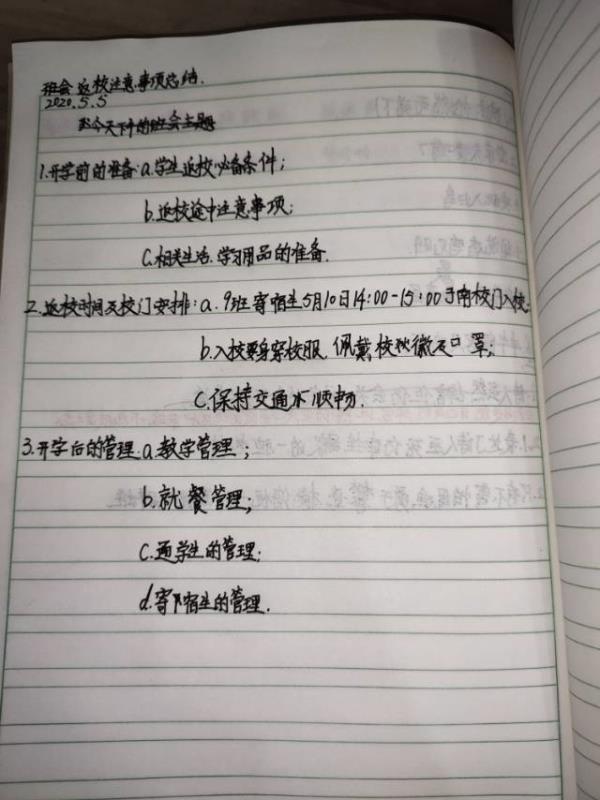 班会返校注意事项总结.
2020.5.5
今天下午的班会主题
1.开学前的准备:a.学生返校必备条件;
b.返校途中注意事项;
C.相关生活.学习用品的准备.
2.返校时间及校门安排:a.9班寄宿生5月10日14:00-15:00于南校门入校;
b.入校要身穿校服.佩戴校牌徽及口罩;
C.保持交通水顺畅.
3.开学后的管理.a.教学管理;
b.就餐管理;
C.通学生的管理;
d.寄宿生的管理.